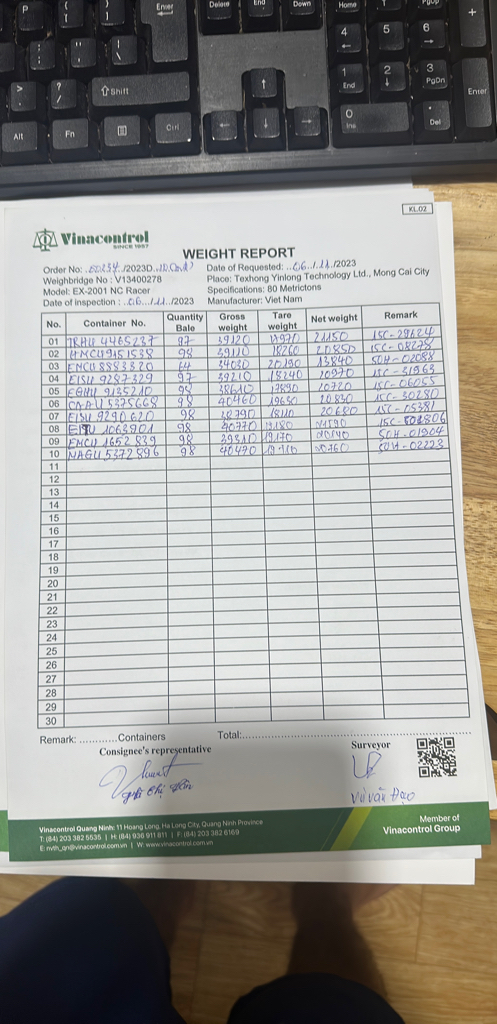 Enter
Delete
End
Down
Home
PgUp
P
+
4
5
6
Shift
1
End
2
3
PgDn
Enter
Alt
Fn
Ctrl
0
Ins
Del
KL.02
Vinacontrol
SINCE 1957
WEIGHT REPORT
Order No: /2023D Date of Requested: 06/11/2023
Weighbridge No : V13400278 Place: Texhong Yinlong Technology Ltd., Mong Cai City
Model: EX-2001 NC Racer Specifications: 80 Metrictons
Date of inspection : 06/11/2023 Manufacturer: Viet Nam
No. Container No. Quantity Bale Gross weight Tare weight Net weight Remark
01 TRHU 4465237 97 39120 17970 21150 15C-29624
02 HMCU9151538 98 39110 18260 20850 15C-08278
03 EMCU8883320 64 34030 20190 13840 50H-02088
04 EISU 9287329 97 39210 18240 20970 15C-31963
05 EGHU 9135210 98 38610 17890 20720 15C-06055
06 CAAU 5375668 98 40460 19630 20830 15C-30280
07 EISU 9290620 98 38790 18110 20680 15C-05381
08 EITU 1063901 98 40770 19180 21590
09 EMCU 1652839 98 39310 19170 20140 50H-01904
10 NAGU5372896 98 40470 19710 20760 50H-02223
11
12
13
14
15
16
17
18
19
20
21
22
23
24
25
26
27
28
29
30
Remark: ............Containers Total:
Consignee's representative Surveyor
Vũ Văn Đạo
Vinacontrol Quang Ninh: 11 Hoang Long, Ha Long City, Quang Ninh Province
T: (84) 203 382 5535 | H: (84) 936 911 811 | F: (84) 203 382 6169
E: nvth_qn@vinacontrol.com.vn | W: www.vinacontrol.com.vn
Member of
Vinacontrol Group